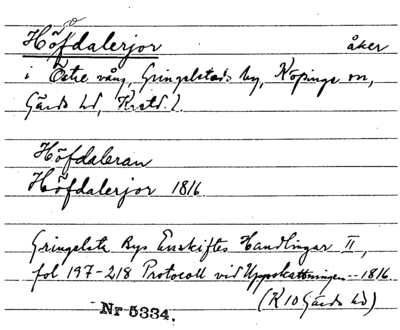 Höfdalerjor åker
i Östre vång, Gringelstads by, Köpinge sn,
Gärds hd, Kristd. l.
Höfdaleran
Höfdalerjor 1816
Gringelsta Bys Enskiftes Handlingar II,
fol 197-218 Protocoll vid Uppskattningen -- 1816.
(K 10 Gärds hd)
Nr 5334.